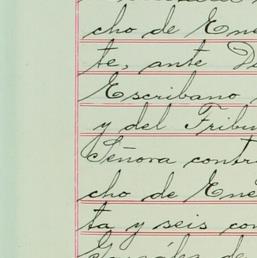 cho de Ene
te, ante D
Escribano
y del Tribu
Señora contr
cho de Ene
ta y seis con
González de